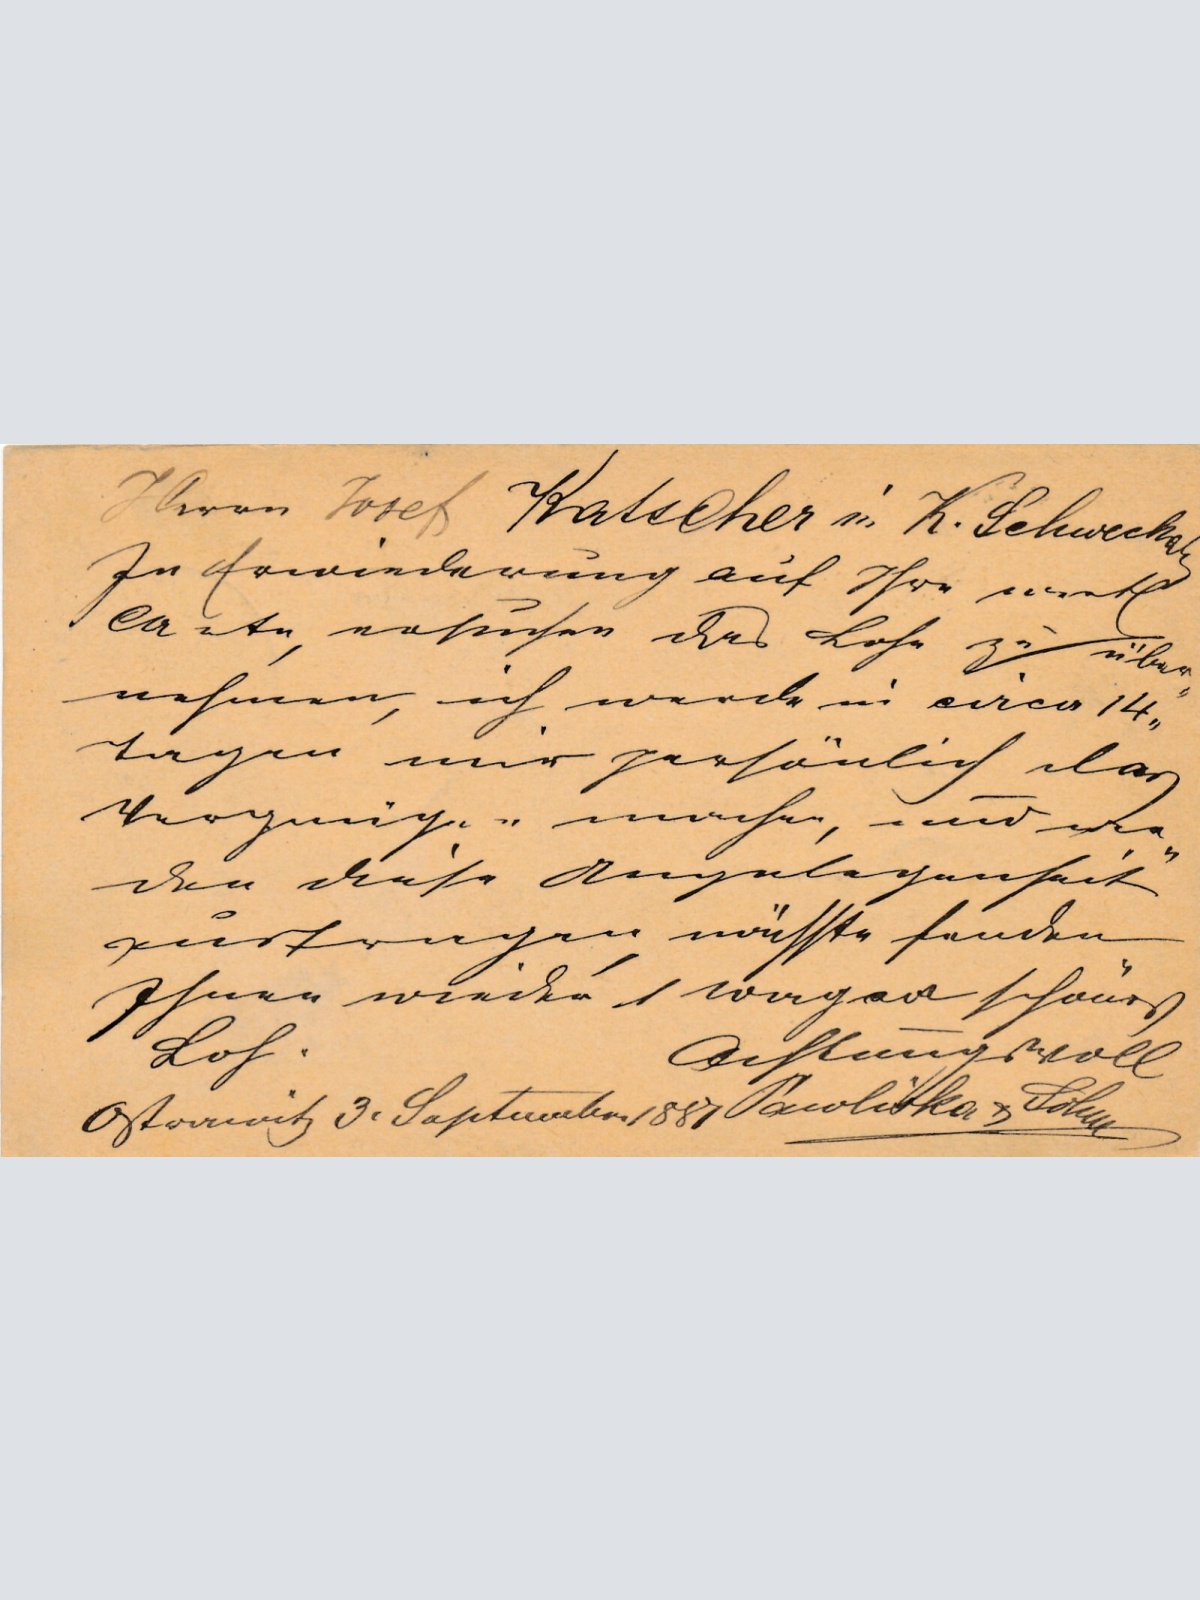 Herrn Josef Katscher in K. Schweckat
In Erwiederung auf Ihre werth
Carte, ersuchen das Lohe zu über„
nehmen, ich werde in circa 14„
Tagen mir persönlich das
Vergnügen machen, und wer„
den diese Angelegenheit
austragen, nächste senden
Ihnen wieder 1 wagen schönes
Loh. Achtungsvoll
Ostrawitz 3. September 1887 Pawlitska & Söhne